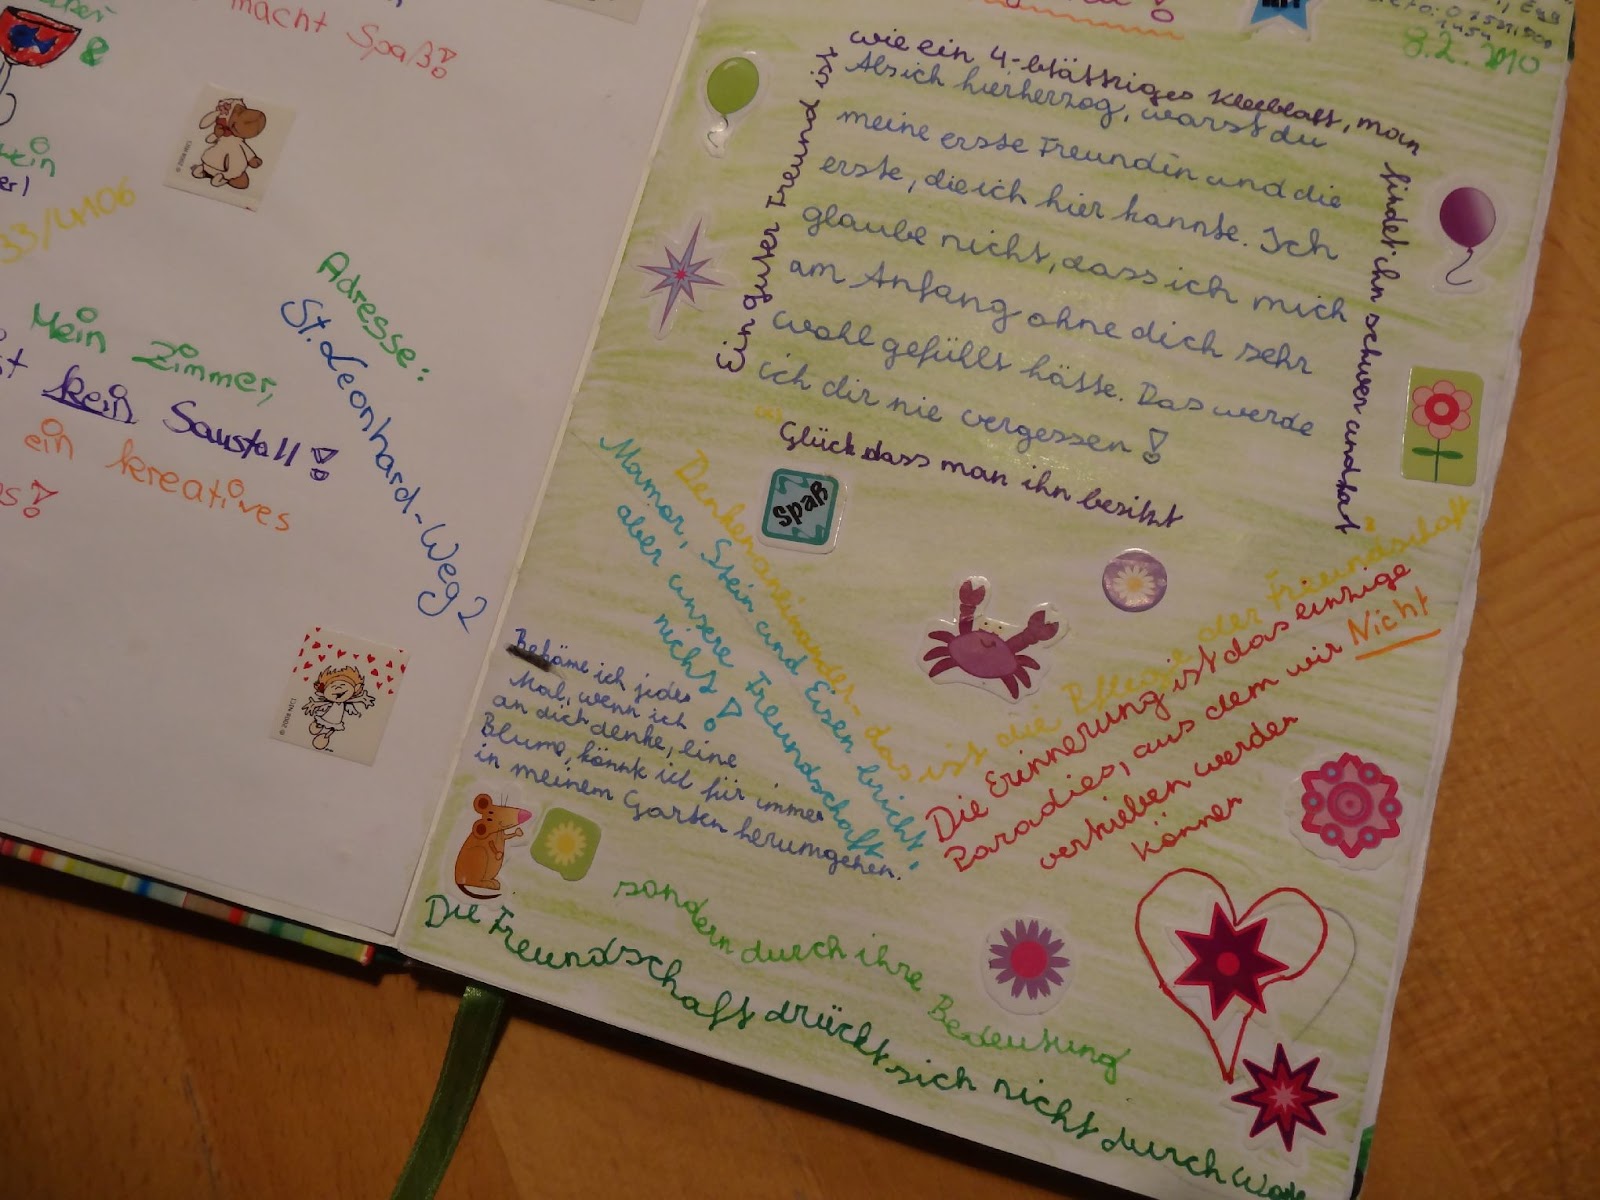 macht Spaß!
&
33/4106
Mein Zimmer,
kein Saustall!
ein kreatives
Adresse:
St. Leonhard-Weg 2
© 2008 NICI
© 2008 NICI
8.2. 2010
Ein guter Freund ist
wie ein 4-blättriges Kleeblatt, man
findet ihn schwer und hat
Glück dass man ihn besitzt
Als ich hierherzog, warst du
meine erste Freundin und die
erste, die ich hier kannte. Ich
glaube nicht, dass ich mich
am Anfang ohne dich sehr
wohl gefüllt hätte. Das werde
ich dir nie vergessen!
Spaß
Denken aneinander - das ist die Pflege der Freundschaft
Marmor, Stein und Eisen bricht,
aber unsere Freundschaft
nicht!
Die Erinnerung ist das einzige
Paradies, aus dem wir Nicht
vertrieben werden
können
Bekäme ich jedes
Mal, wenn ich
an dich denke, eine
Blume, könnte ich für immer
in meinem Garten herumgehen.
Die Freundschaft drückt sich nicht durch
sondern durch ihre Bedeutung